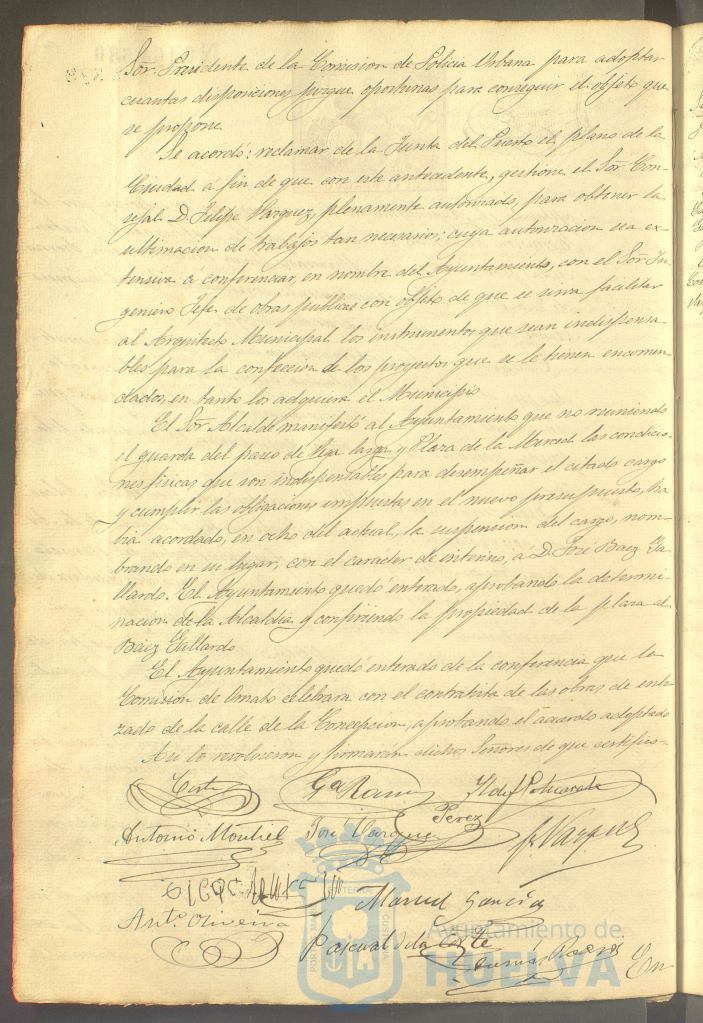 Sor. Presidente de la Comision de Policia Urbana para adoptar
cuantas disposiciones juzgue oportunas para conseguir el objeto que
se propone.
Se acordó: reclamar de la Junta del Puerto el plano de la
Ciudad a fin de que con este antecedente, gestione el Sor. Con-
cejal D. Felipe Vazquez, plenamente autorizado, para obtener la
ultimacion de trabajos tan necesarios; cuya autorizacion sea ex-
tensiva á conferenciar, en nombre del Ayuntamiento, con el Sor. In-
geniero Jefe de obras publicas con objeto de que se sirva facilitar
al Arquitecto Municipal los instrumentos que sean indispensa-
bles para la confeccion de los proyectos que se le tienen encomen-
dados, en tanto los adquiera el Municipio
El Sor. Alcalde manifestó al Ayuntamiento que no reuniendo
el guarda del paseo de Vega larga y Plaza de la Merced las condicio-
nes fisicas que son indispensables para desempeñar el citado cargo
y cumplir las obligaciones impuestas en el nuevo presupuesto, ha-
bia acordado, en ocho del actual, la suspension del cargo, nom-
brando en su lugar, con el caracter de interino, á D. José Baez Ga-
llardo. El Ayuntamiento quedó enterado, aprobando la determi-
nacion de la Alcaldia y confiriendo la propiedad de la plaza al
Baez Gallardo
El Ayuntamiento quedó enterado de la conferencia que la
Comision de Ornato celebrara con el contratista de las obras de enlo-
zado de la calle de la Concepcion, aprobando el acuerdo adoptado
Asi lo resolvieron y firmaran dichos Señores de que certifico-
Corte Ga Ramos
Perez
Antonio Montiel José Vazquez F. Vazquez
Manuel Garcia
Anto. Oliveira
Pascual de la Corte
En
Ayuntamiento de
HUELVA